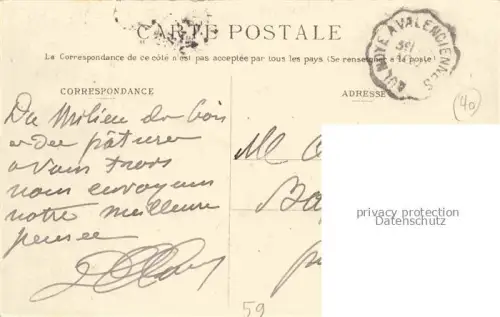 CARTE POSTALE
La Correspondance de ce côté n'est pas acceptée par tous les pays (Se renseigner à la poste)
CORRESPONDANCE
ADRESSE
AULNOYE A VALENCIENNES
40
Du Milieu des bois
et des pâtures
a vous trois
nous envoyons
notre meilleure
pensée
M
59
privacy protection
Datenschutz